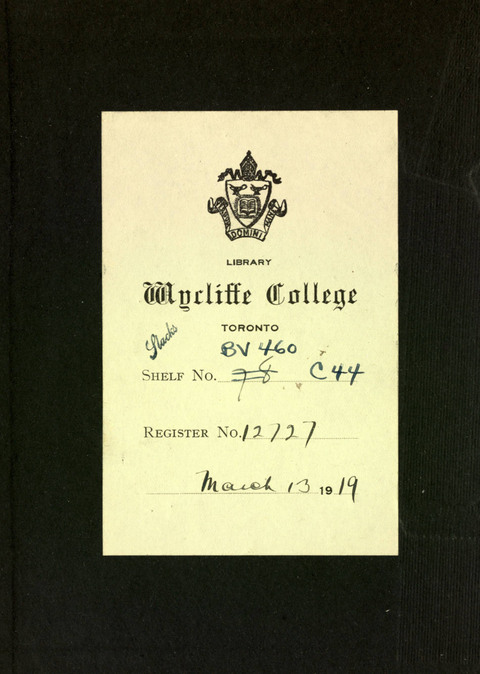 DOMINI
LIBRARY
Wycliffe College
TORONTO
Stacks
BV 460
SHELF No. 78 C44
REGISTER No. 12727
March 13 1919